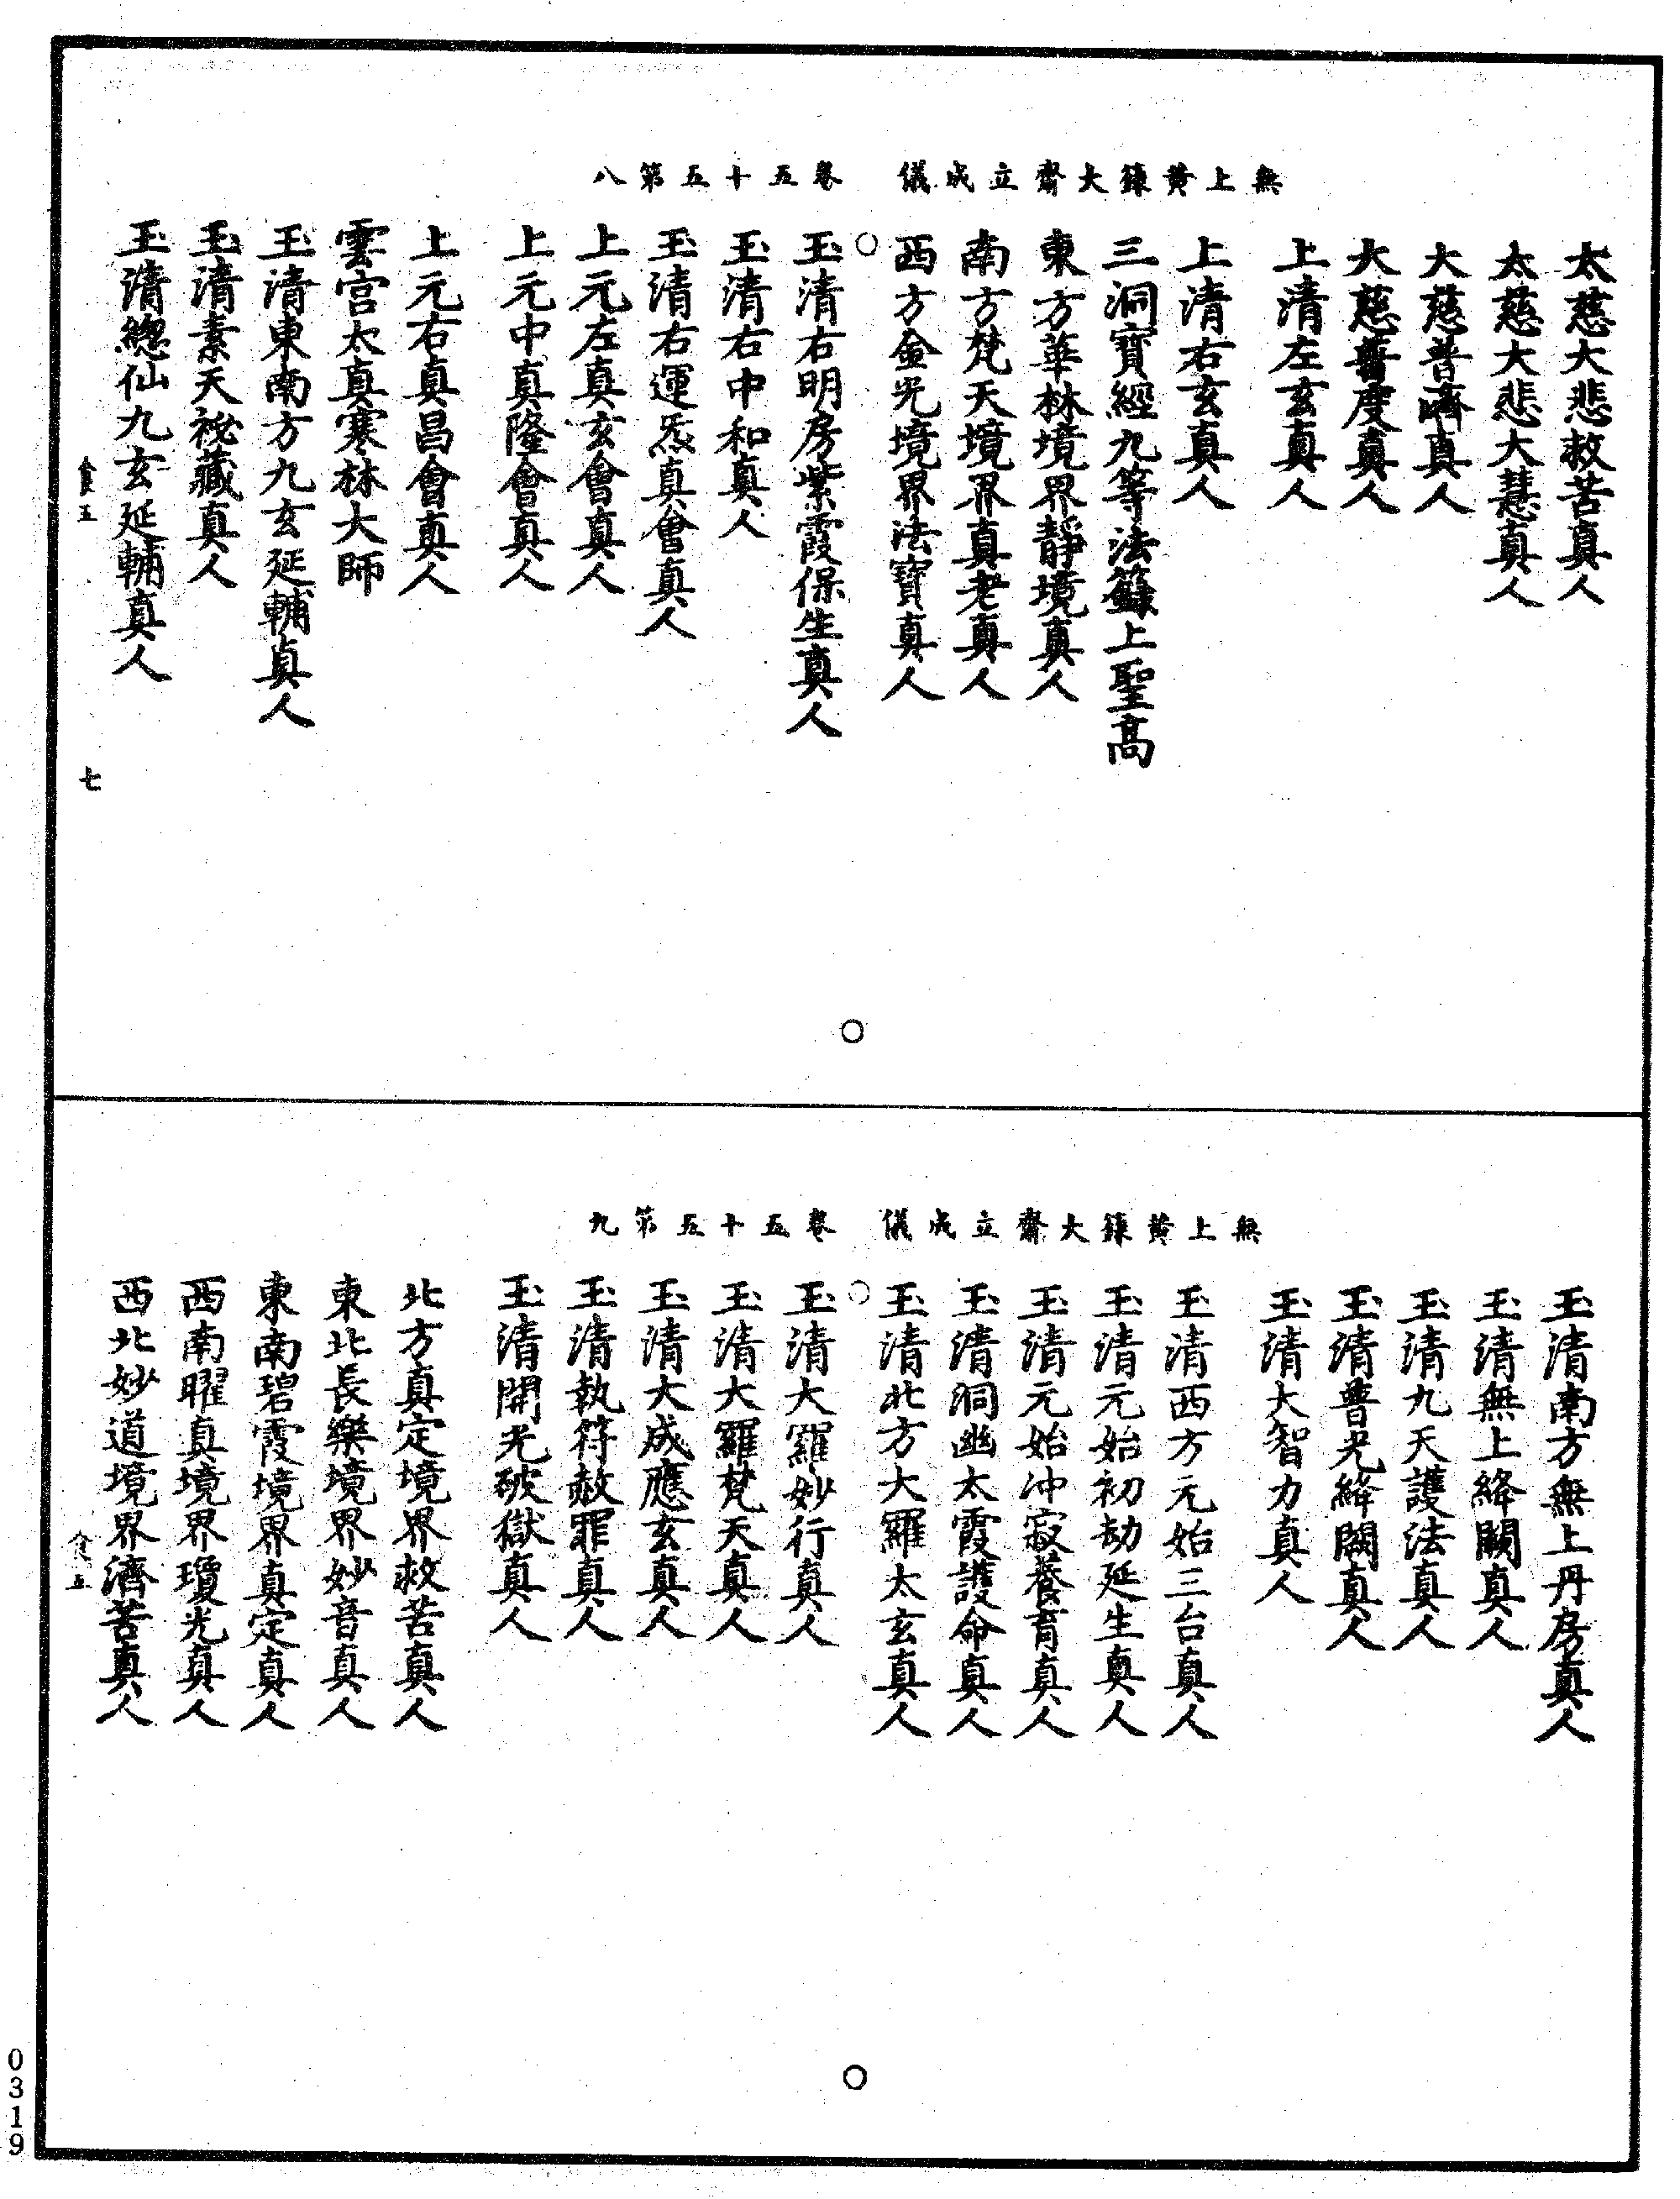 無上黃籙大齋立成儀　卷五十五第八
太慈大悲救苦真人
太慈大悲大慧真人
大慈普濟真人
大慈普度真人
上清左玄真人
上清右玄真人
三洞寶經九等法籙上聖高
東方華林境界靜境真人
南方梵天境界真老真人
西方金光境界法寶真人
玉清右明房紫霞保生真人
玉清右中和真人
玉清右運炁真會真人
上元左真玄會真人
上元中真隆會真人
上元右真昌會真人
雲宮太真寒林大師
玉清東南方九玄延輔真人
玉清素天祕藏真人
玉清總仙九玄延輔真人
食五　七
無上黃籙大齋立成儀　卷五十五第九
玉清南方無上丹房真人
玉清無上絳闕真人
玉清九天護法真人
玉清普光絳闕真人
玉清大智力真人
玉清西方元始三台真人
玉清元始初劫延生真人
玉清元始沖寂養育真人
玉清洞幽太霞護命真人
玉清北方大羅太玄真人
玉清大羅妙行真人
玉清大羅梵天真人
玉清大成應玄真人
玉清執符赦罪真人
玉清開光破獄真人
北方真定境界救苦真人
東北長樂境界妙音真人
東南碧霞境界真定真人
西南曜真境界瓊光真人
西北妙道境界濟苦真人
食五
0319